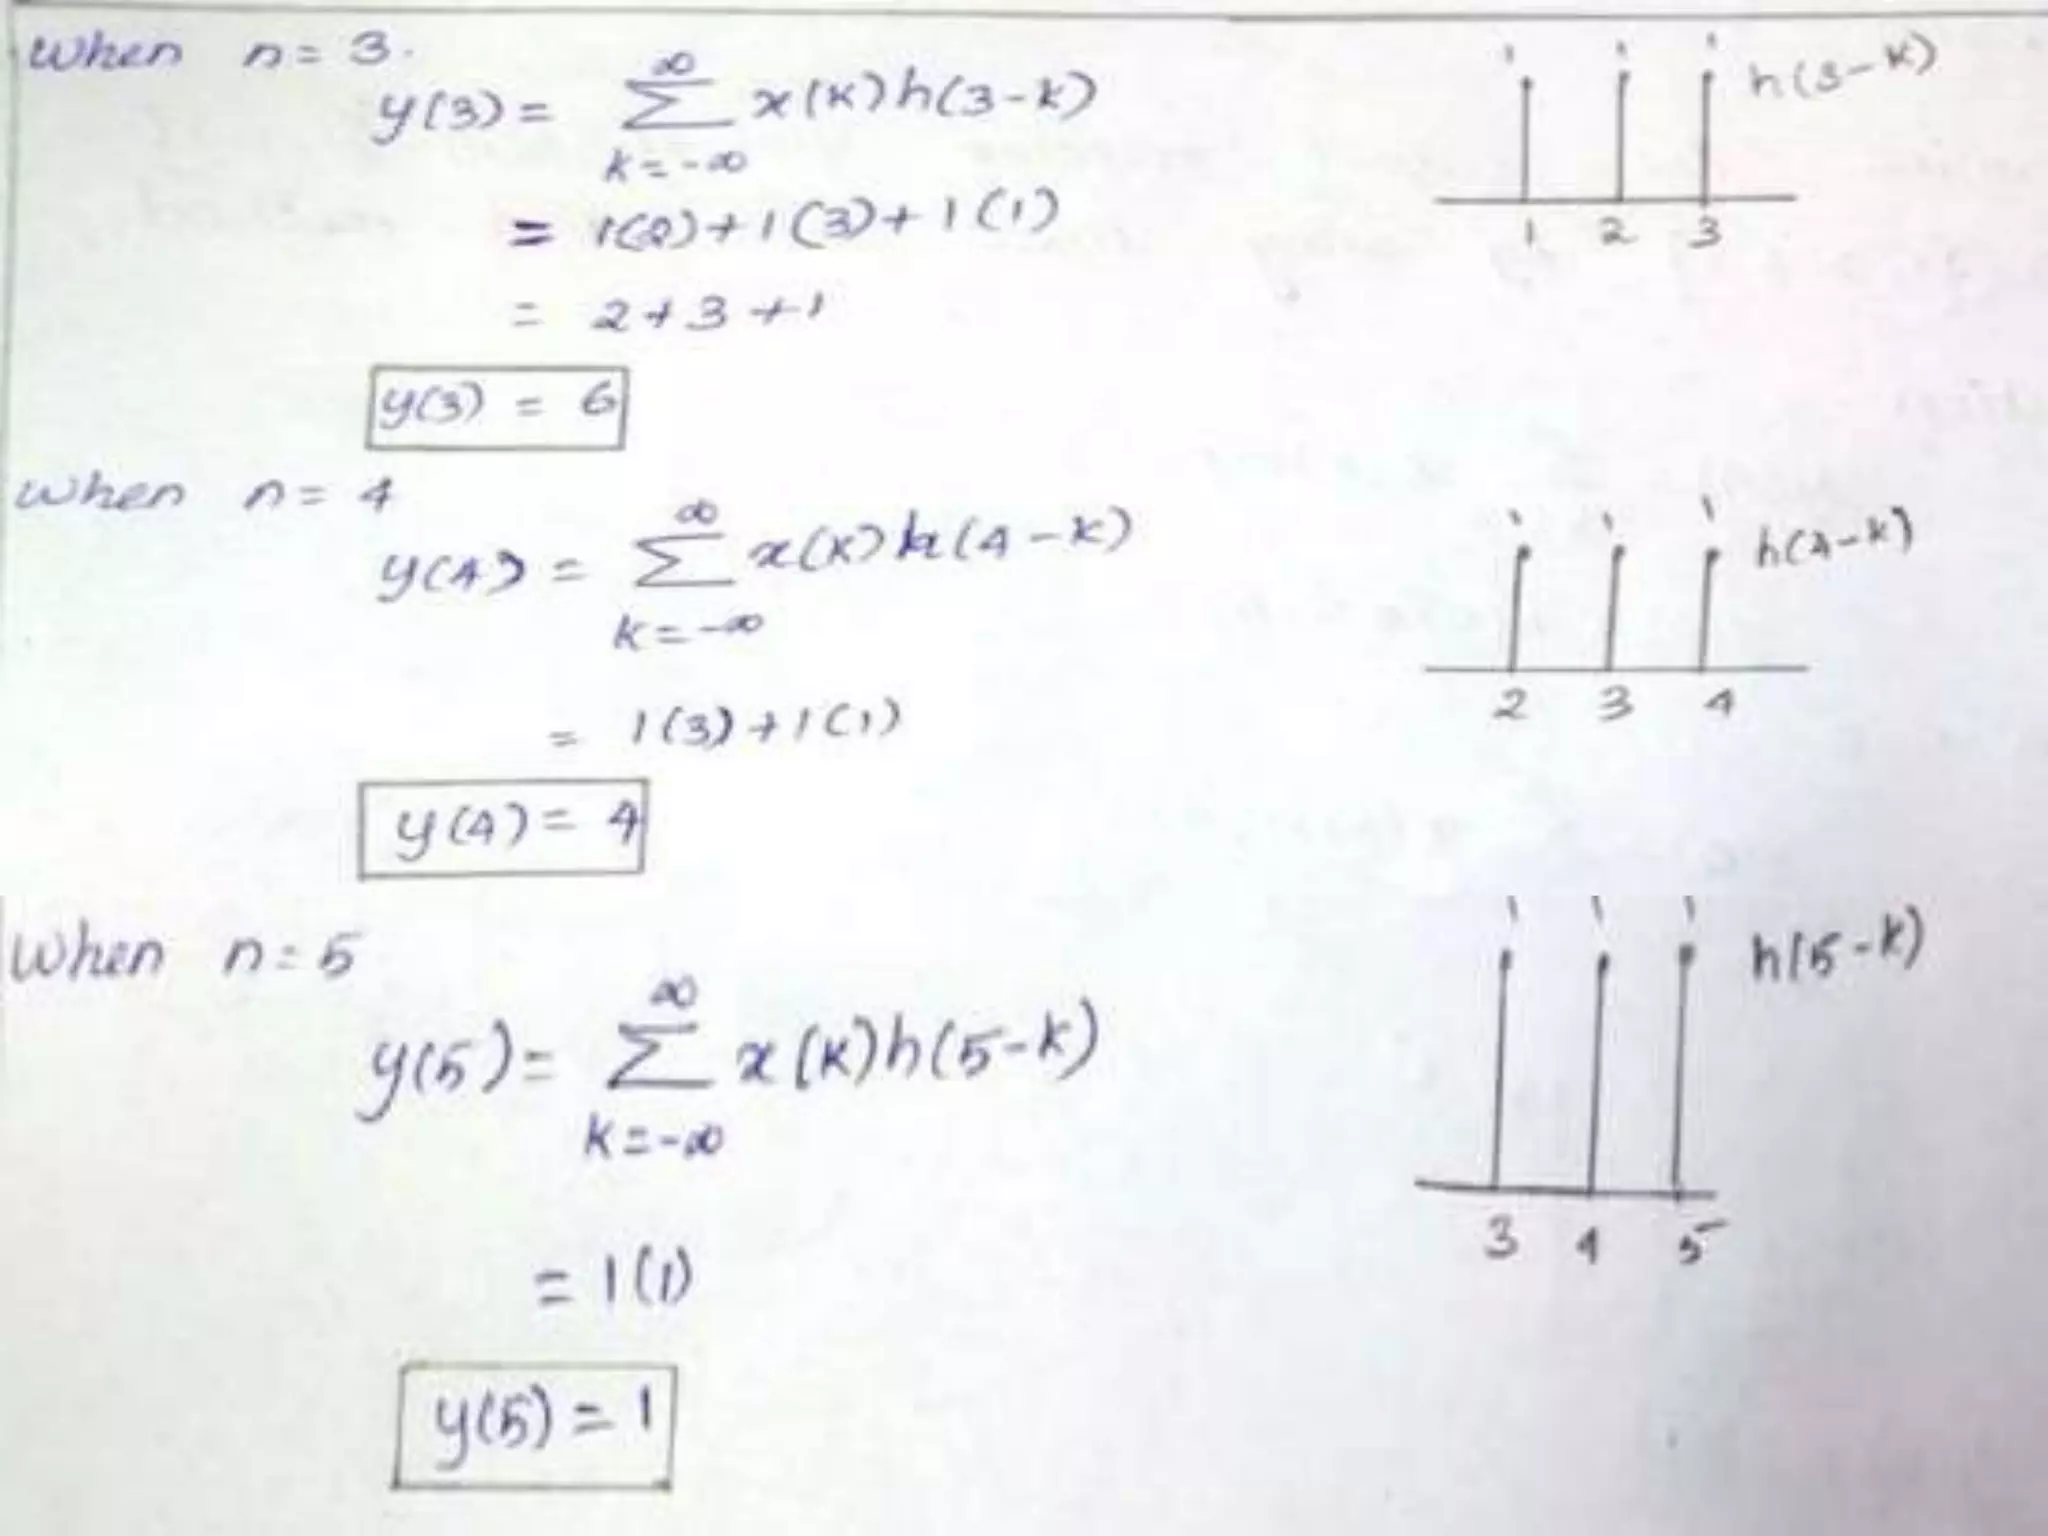 When n = 3.
y(3) = ∞ Σ k=-∞ x(k)h(3-k)
1 1 1 h(3-k)
1 2 3
= 1(2)+1(3)+1(1)
= 2+3+1
y(3) = 6
When n = 4
y(4) = ∞ Σ k=-∞ x(k)h(4-k)
1 1 1 h(4-k)
2 3 4
= 1(3)+1(1)
y(4) = 4
When n = 5
y(5) = ∞ Σ k=-∞ x(k)h(5-k)
1 1 1 h(5-k)
3 4 5
= 1(1)
y(5) = 1